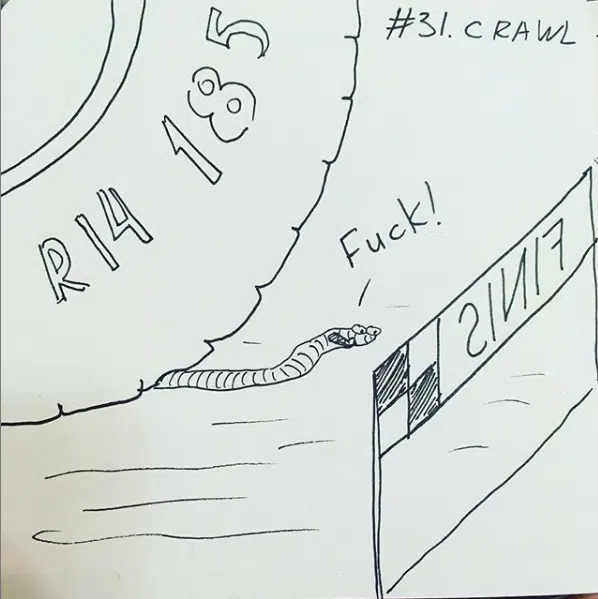 #31. CRAWL
R14 185
Fuck!
FINIS